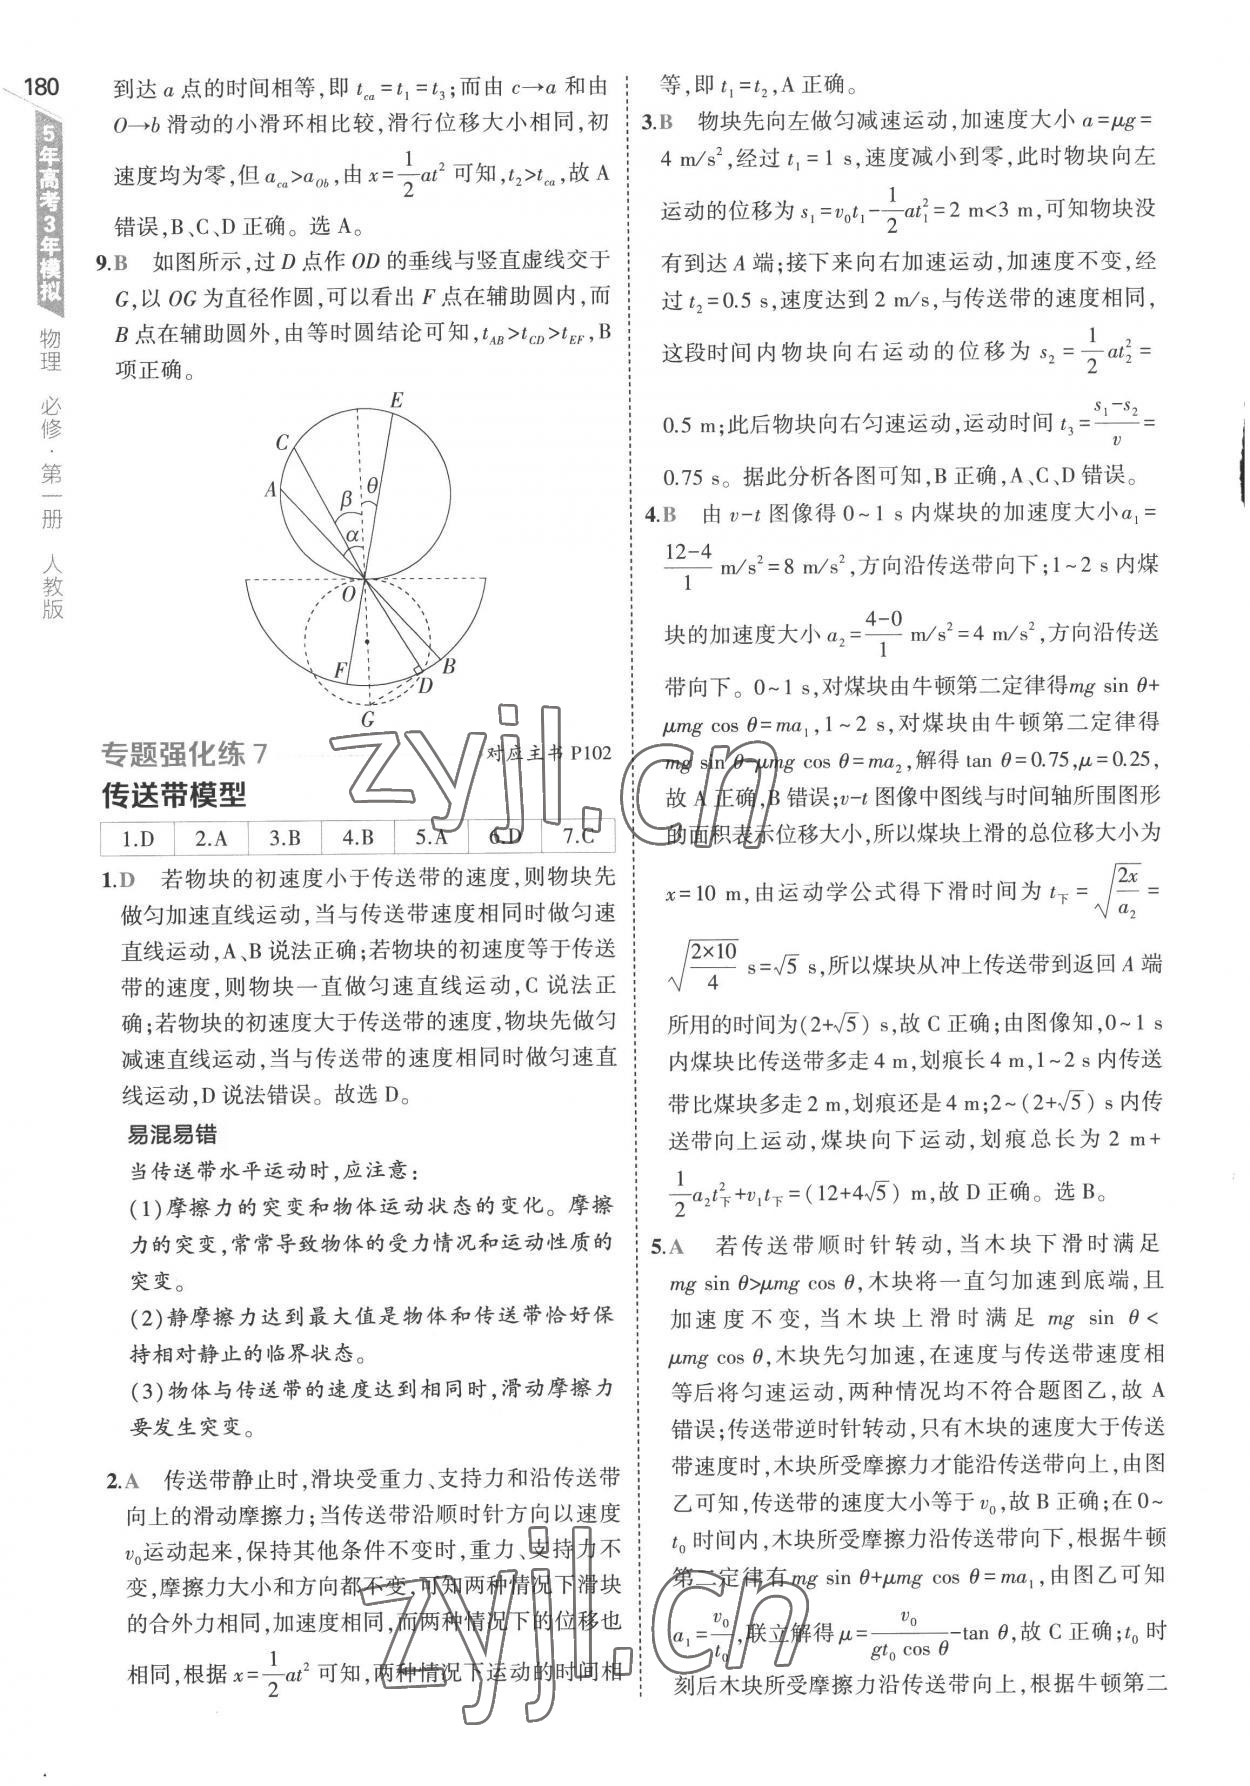 180
5年高考3年模拟
物理 必修·第一册 人教版
到达 a 点的时间相等,即 t_ca=t_1=t_3;而由 c→a 和由
O→b 滑动的小滑环相比较,滑行位移大小相同,初
速度均为零,但 a_ca>a_Ob,由 x=1/2at² 可知,t_2>t_ca,故 A
错误,B、C、D 正确。选 A。
9.B 如图所示,过 D 点作 OD 的垂线与竖直虚线交于
G,以 OG 为直径作圆,可以看出 F 点在辅助圆内,而
B 点在辅助圆外,由等时圆结论可知,t_AB>t_CD>t_EF,B
项正确。
E
C
A
β
θ
α
O
F
B
D
G
专题强化练 7 对应主书 P102
传送带模型
1.D 2.A 3.B 4.B 5.A 6.D 7.C
1.D 若物块的初速度小于传送带的速度,则物块先
做匀加速直线运动,当与传送带速度相同时做匀速
直线运动,A、B 说法正确;若物块的初速度等于传送
带的速度,则物块一直做匀速直线运动,C 说法正
确;若物块的初速度大于传送带的速度,物块先做匀
减速直线运动,当与传送带的速度相同时做匀速直
线运动,D 说法错误。故选 D。
易混易错
当传送带水平运动时,应注意:
(1)摩擦力的突变和物体运动状态的变化。摩擦
力的突变,常常导致物体的受力情况和运动性质的
突变。
(2)静摩擦力达到最大值是物体和传送带恰好保
持相对静止的临界状态。
(3)物体与传送带的速度达到相同时,滑动摩擦力
要发生突变。
2.A 传送带静止时,滑块受重力、支持力和沿传送带
向上的滑动摩擦力;当传送带沿顺时针方向以速度
v_0运动起来,保持其他条件不变时,重力、支持力不
变,摩擦力大小和方向都不变,可知两种情况下滑块
的合外力相同,加速度相同,而两种情况下的位移也
相同,根据 x=1/2at² 可知,两种情况下运动的时间相
等,即 t_1=t_2,A 正确。
3.B 物块先向左做匀减速运动,加速度大小 a=μg=
4 m/s²,经过 t_1=1 s,速度减小到零,此时物块向左
运动的位移为 s_1=v_0t_1-1/2at_1²=2 m<3 m,可知物块没
有到达 A 端;接下来向右加速运动,加速度不变,经
过 t_2=0.5 s,速度达到 2 m/s,与传送带的速度相同,
这段时间内物块向右运动的位移为 s_2=1/2at_2²=
0.5 m;此后物块向右匀速运动,运动时间 t_3=(s_1-s_2)/v=
0.75 s。据此分析各图可知,B 正确,A、C、D 错误。
4.B 由 v-t 图像得 0~1 s 内煤块的加速度大小 a_1=
(12-4)/1 m/s²=8 m/s²,方向沿传送带向下;1~2 s 内煤
块的加速度大小 a_2=(4-0)/1 m/s²=4 m/s²,方向沿传送
带向下。0~1 s,对煤块由牛顿第二定律得mg sin θ+
μmg cos θ=ma_1,1~2 s,对煤块由牛顿第二定律得
mg sin θ-μmg cos θ=ma_2,解得 tan θ=0.75,μ=0.25,
故 A 正确,B 错误;v-t 图像中图线与时间轴所围图形
的面积表示位移大小,所以煤块上滑的总位移大小为
x=10 m,由运动学公式得下滑时间为 t_下=√(2x/a_2)=
√(2×10/4) s=√5 s,所以煤块从冲上传送带到返回 A 端
所用的时间为(2+√5) s,故 C 正确;由图像知,0~1 s
内煤块比传送带多走 4 m,划痕长 4 m,1~2 s 内传送
带比煤块多走 2 m,划痕还是 4 m;2~(2+√5) s 内传
送带向上运动,煤块向下运动,划痕总长为 2 m+
1/2a_2t_下²+v_1t_下=(12+4√5) m,故 D 正确。选 B。
5.A 若传送带顺时针转动,当木块下滑时满足
mg sin θ>μmg cos θ,木块将一直匀加速到底端,且
加速度不变,当木块上滑时满足 mg sin θ<
μmg cos θ,木块先匀加速,在速度与传送带速度相
等后将匀速运动,两种情况均不符合题图乙,故 A
错误;传送带逆时针转动,只有木块的速度大于传送
带速度时,木块所受摩擦力才能沿传送带向上,由图
乙可知,传送带的速度大小等于 v_0,故 B 正确;在 0~
t_0 时间内,木块所受摩擦力沿传送带向下,根据牛顿
第二定律有mg sin θ+μmg cos θ=ma_1,由图乙可知
a_1=v_0/t_0,联立解得 μ=v_0/(gt_0 cos θ)-tan θ,故 C 正确;t_0 时
刻后木块所受摩擦力沿传送带向上,根据牛顿第二
zyjl.cn
zyjl.cn